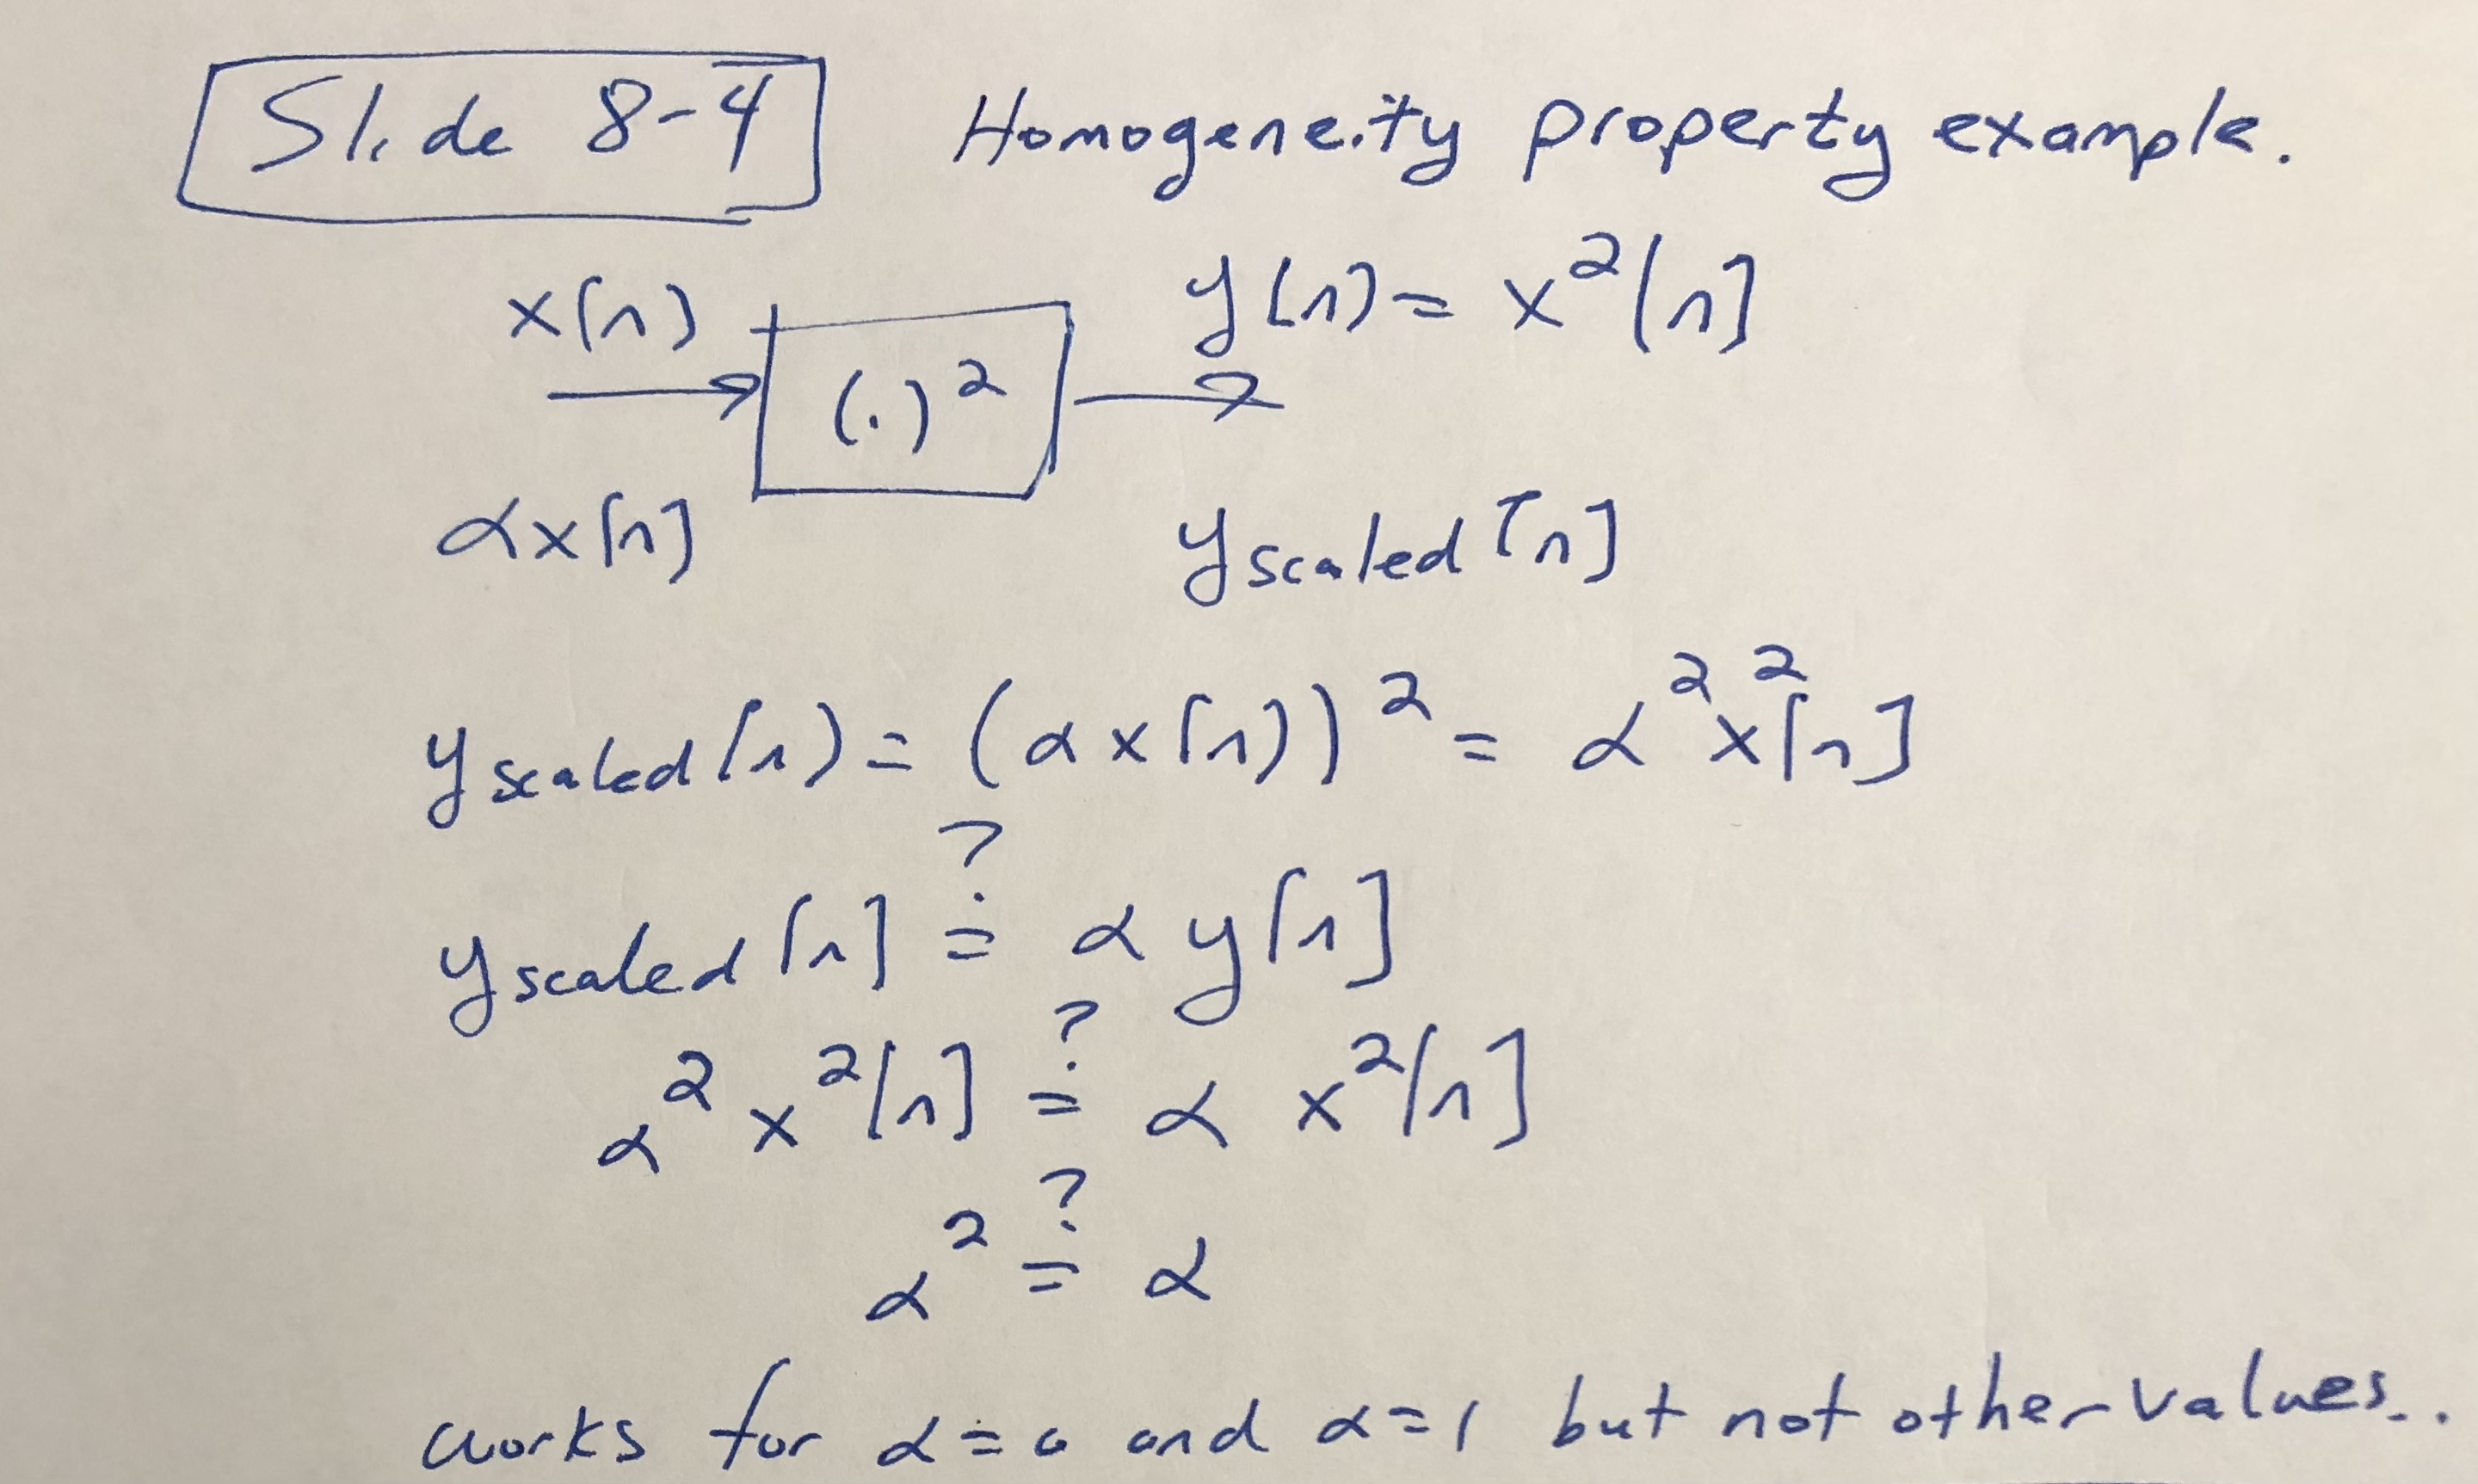 Slide 8-4 Homogeneity property example.
x[n] y[n] = x²[n]
(·)²
αx[n] y_scaled[n]
y_scaled[n] = (αx[n])² = α²x²[n]
y_scaled[n] ≟ α y[n]
α² x²[n] ≟ α x²[n]
α² ≟ α
works for α=0 and α=1 but not other values..